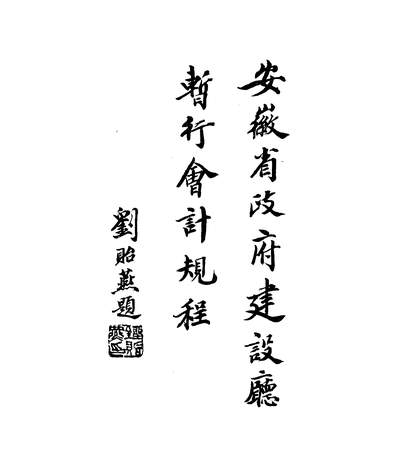 安徽省政府建設廳
暫行會計規程
劉貽燕題